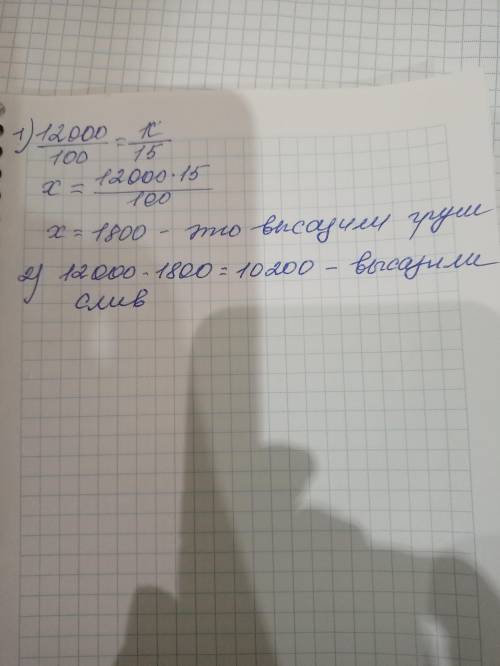 1) 12000/100 = x/15
x = 12000·15/100
x = 1800 - это высадили груш
2) 12000 - 1800 = 10200 - высадили
слив